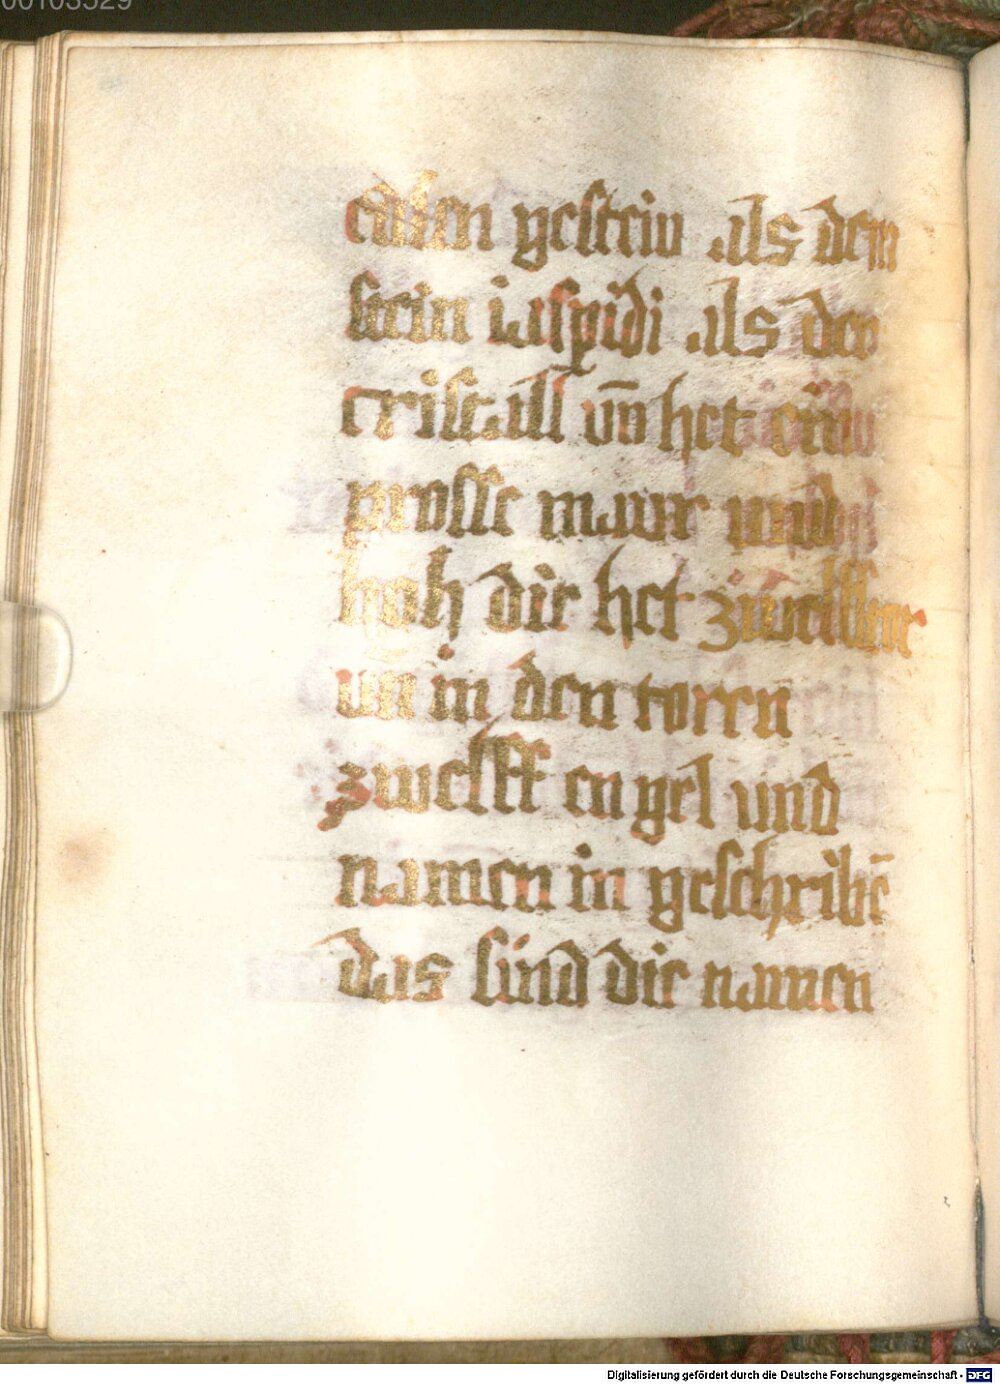 00103529
edlen gestein als dem
stein iaspidi als der
cristall vn̄ het ein
grosse maur und
hoh die het zwelff tor
vn̄ in den torren
zwelff engel und
namen in geschribē
das sind die namen
Digitalisierung gefördert durch die Deutsche Forschungsgemeinschaft - DFG